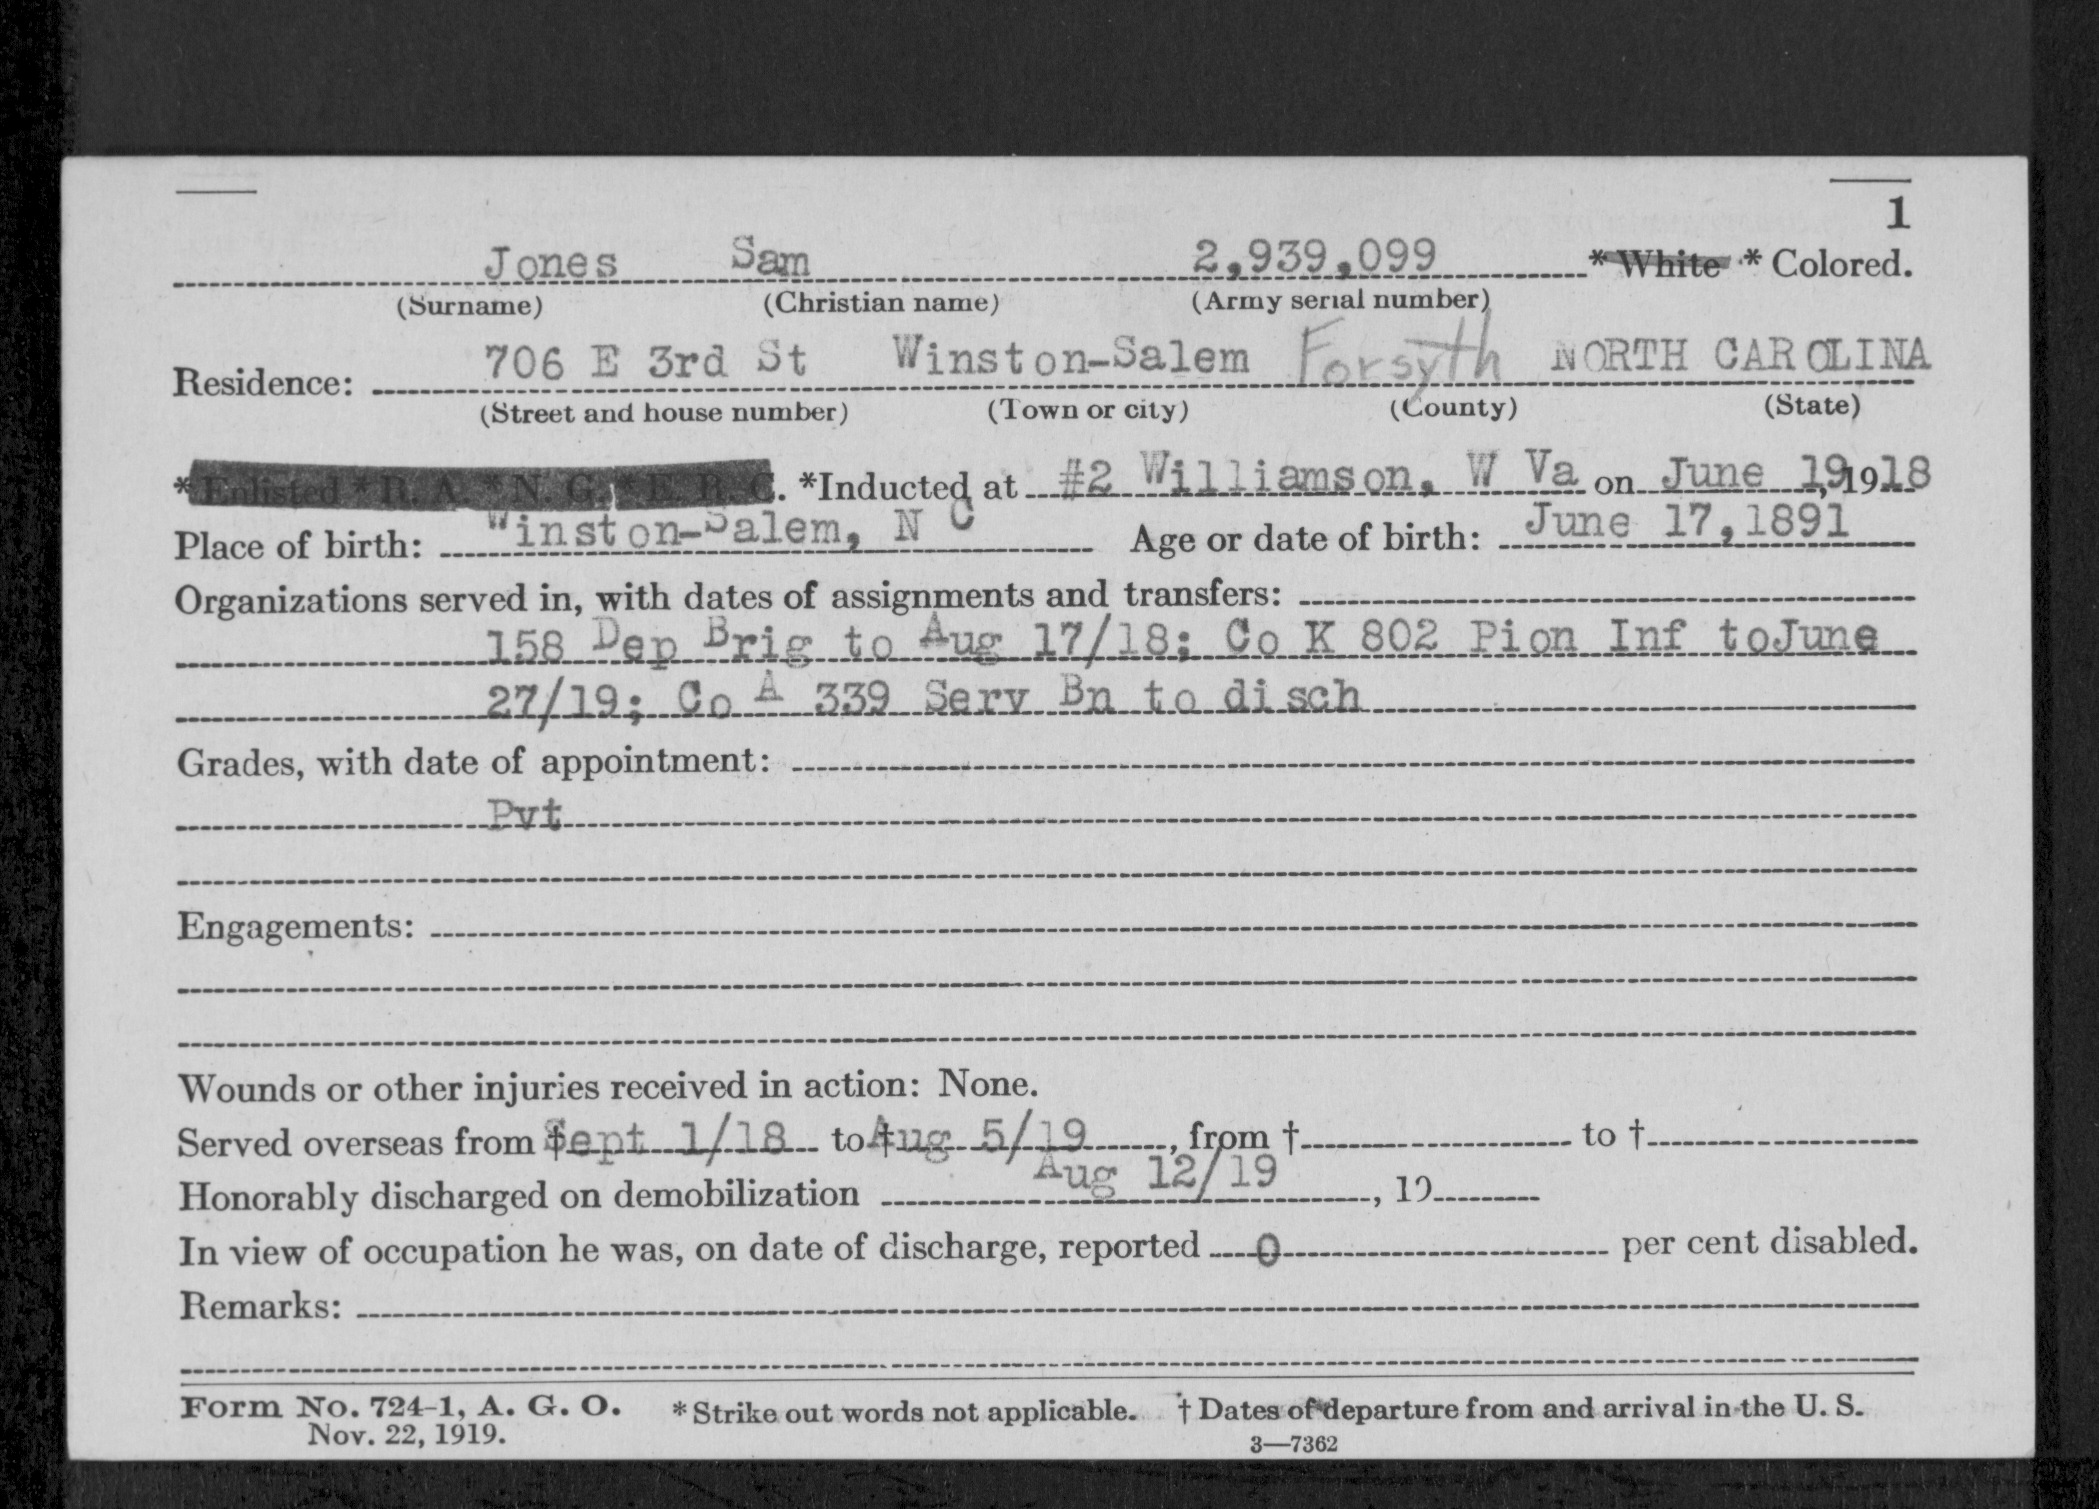 1
Jones Sam 2,939,099 * White * Colored.
(Surname) (Christian name) (Army serial number)
Residence: 706 E 3rd St Winston-Salem Forsyth NORTH CAROLINA
(Street and house number) (Town or city) (County) (State)
*Enlisted *R. A. *N. G. *E. R. C. *Inducted at #2 Williamson, W Va on June 19, 1918
Place of birth: Winston-Salem, N C Age or date of birth: June 17, 1891
Organizations served in, with dates of assignments and transfers:
158 Dep Brig to Aug 17/18; Co K 802 Pion Inf toJune
27/19; Co A 339 Serv Bn to disch
Grades, with date of appointment:
Pvt
Engagements:
Wounds or other injuries received in action: None.
Served overseas from † Sept 1/18 to † Aug 5/19, from † to †
Honorably discharged on demobilization Aug 12/19, 19
In view of occupation he was, on date of discharge, reported 0 per cent disabled.
Remarks:
Form No. 724-1, A. G. O. *Strike out words not applicable. † Dates of departure from and arrival in the U. S.
Nov. 22, 1919. 3—7362